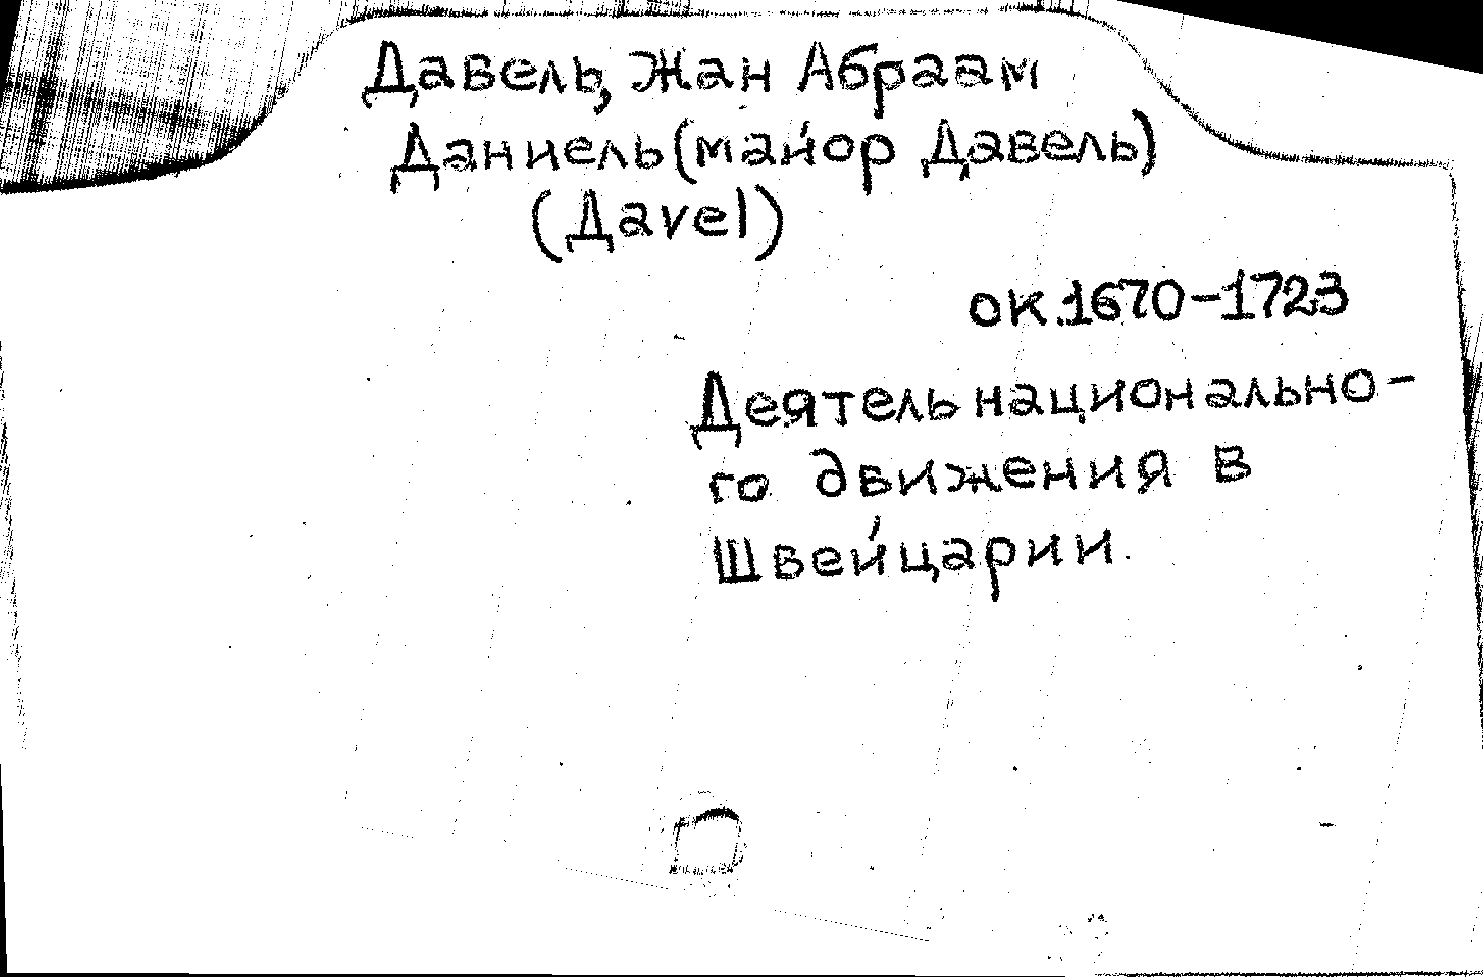 Давель, Жан Абраам
Даниель (майор Давель)
(Даvel)
ок. 1670-1723
Деятель национально-
го движения в
Швейцарии.